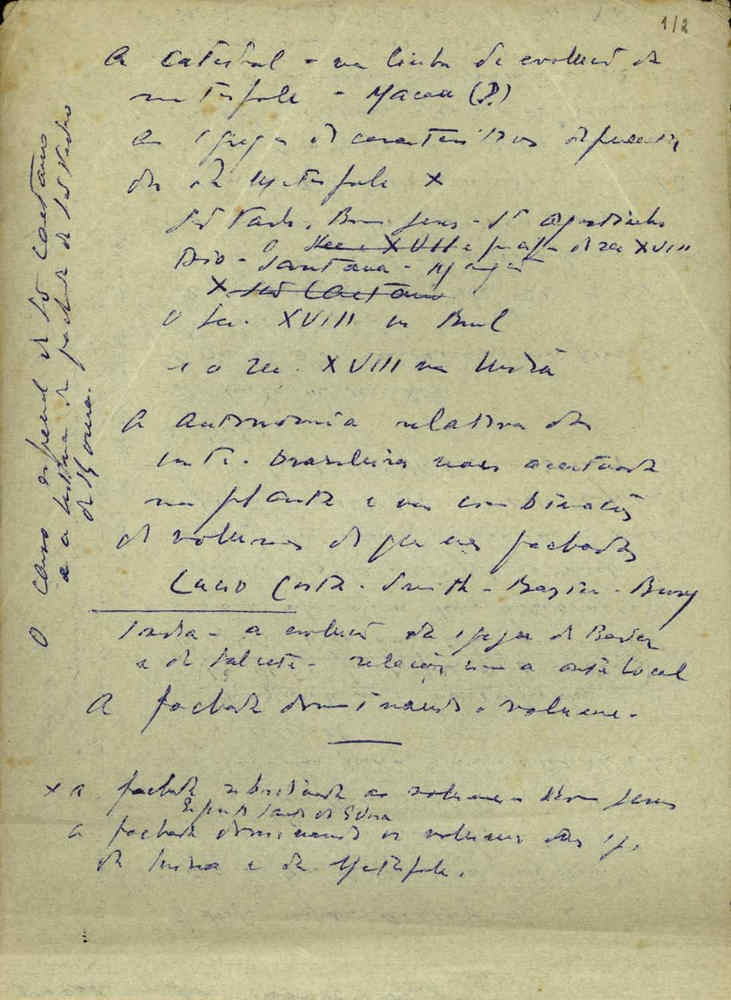 1/2
A Catedral - na linha da evolução da
metrópole - Macau (?)
as igrejas de características
da metrópole X
São Paulo, Bom Jesus - Stº Agostinho
século XVII e de sec XVIII
Santana -
X São Caetano
O sec. XVIII no Brasil
e o sec. XVIII na Índia
A autonomia relativa da
arte brasileira mais acentuada
na planta e na combinação
de volumes do que nas fachadas
Lucio Costa - Smith - Bazin - Bury
Índia - a evolução da igreja de Bardez
e de Salcete - relações com a arte local
A fachada dominando o volume -
x a fachada subordinada ao volume Bom Jesus
Espírito Santo de Évora
a fachada dominando o volume
da Índia e da Metrópole.
O caso especial de São Caetano
e a fachada de São Pedro
de Roma.